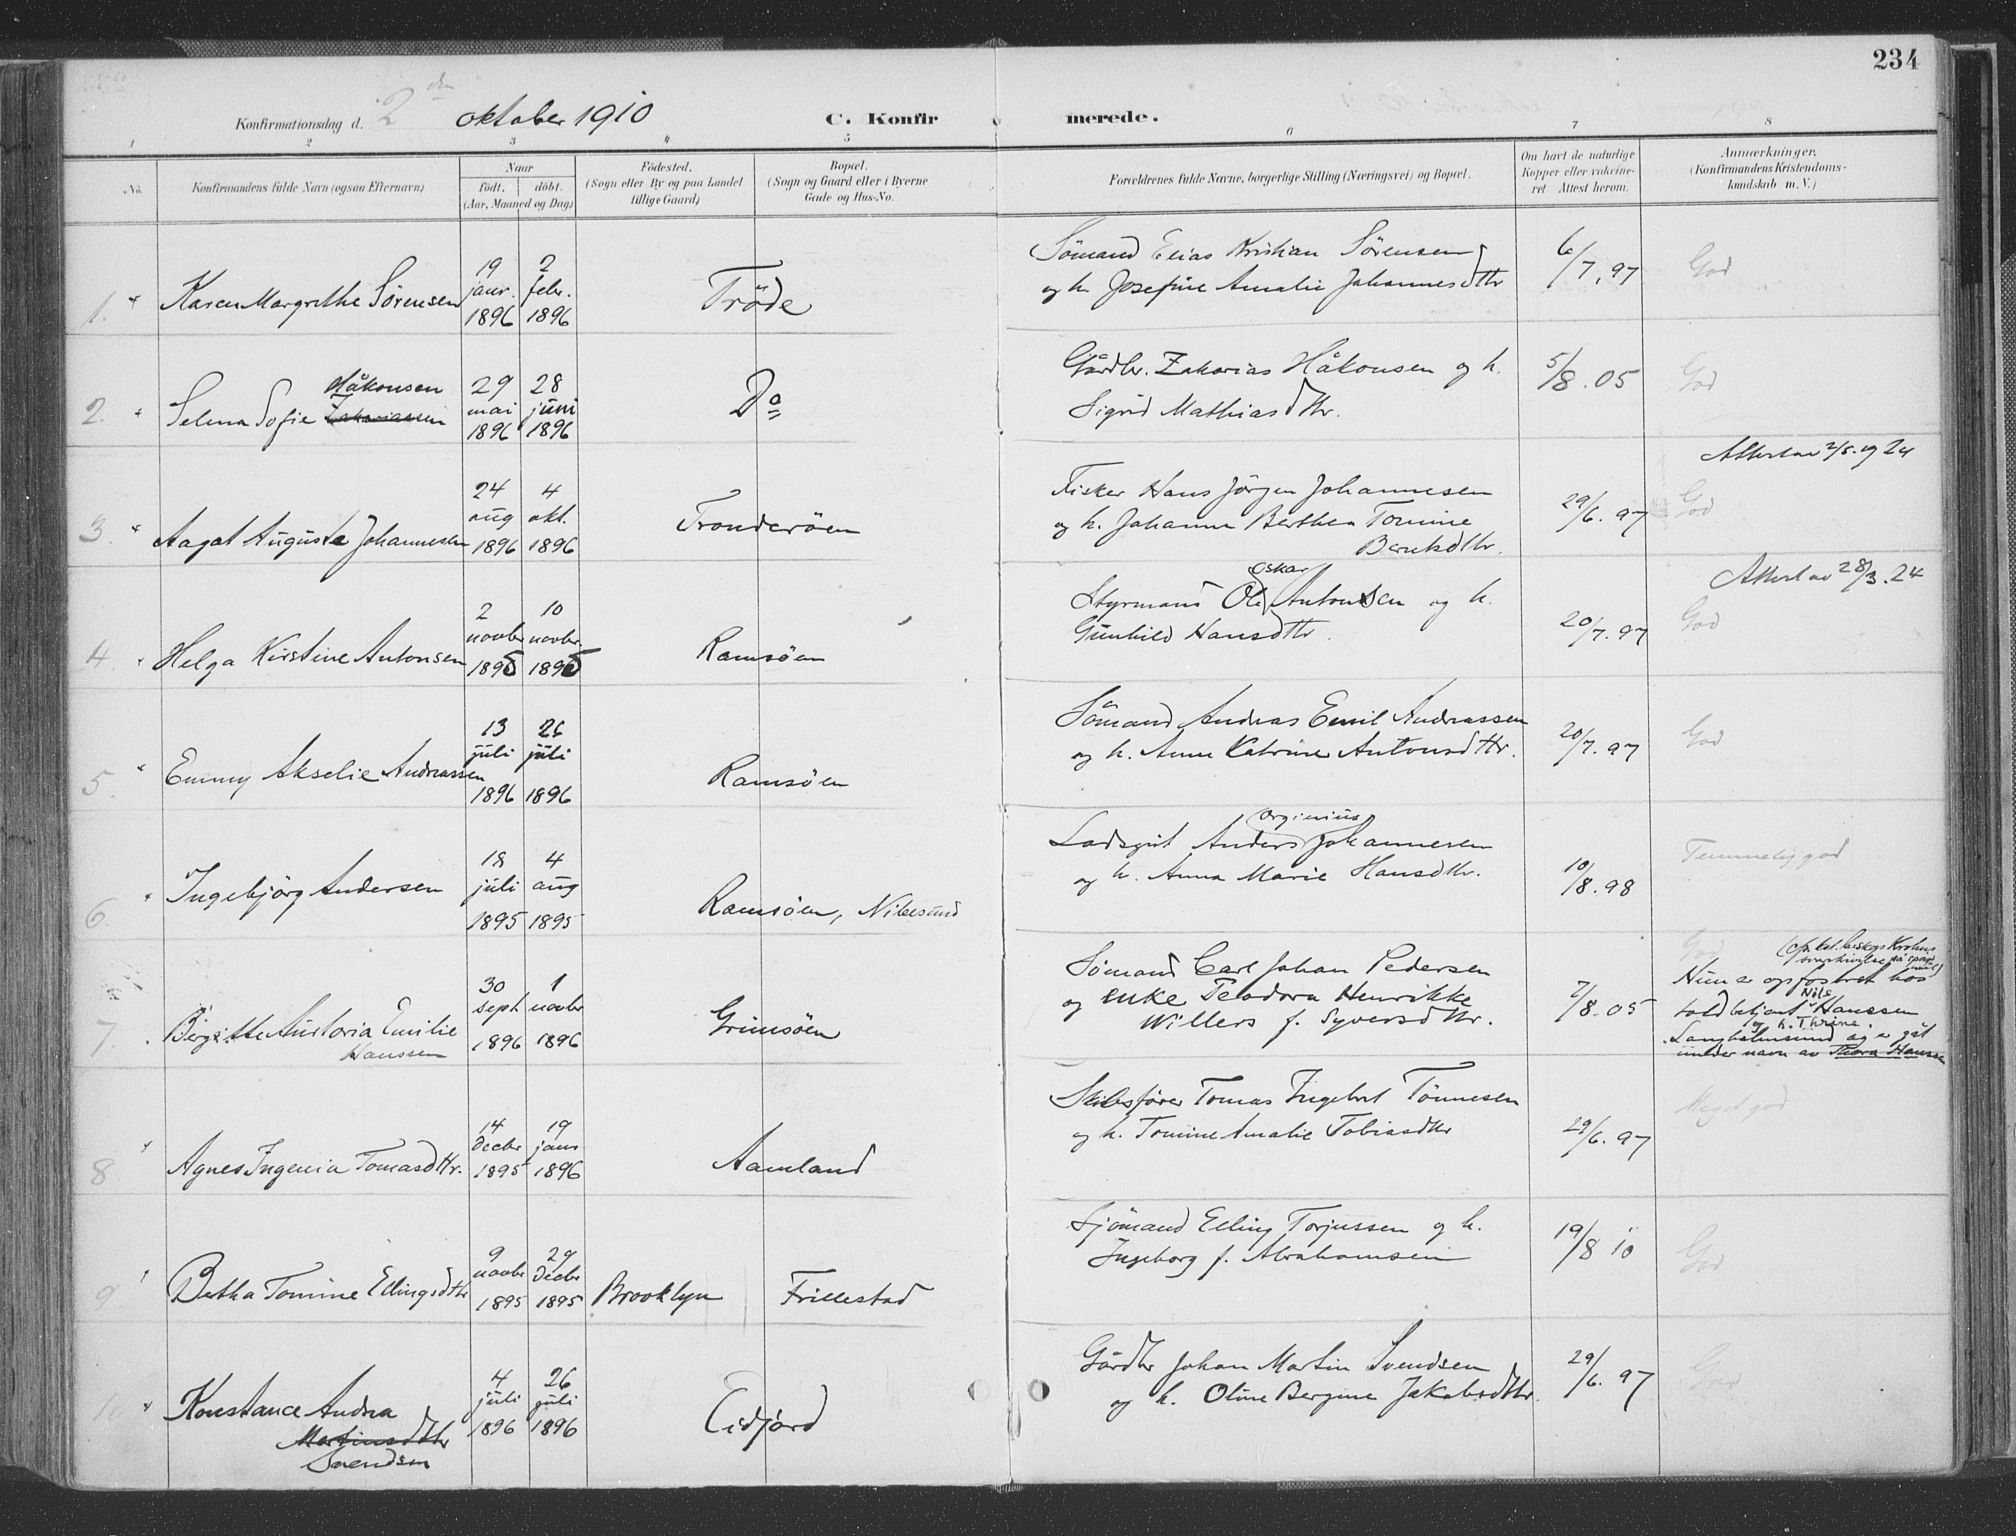 234
Konfirmationsdag d. 2den oktober 1910
C. Konfirmerede.
1 2 3 4 5 6 7 8
No.
Konfirmandens fulde Navn (ogsaa Efternavn)
Naar
födt, döbt.
(Aar, Maaned og Dag)
Födested.
(Sogn eller By og paa Landet
tillige Gaard)
Bopæl.
(Sogn og Gaard eller i Byerne
Gade og Hus-No.
Forældrenes fulde Navne, borgerlige Stilling (Næringsvei) og Bopæl.
Om havt de naturlige
Kopper eller vaccine-
ret Attest herom.
Anmærkninger.
(Konfirmandens Kristendoms-
kundskab m. V.)
1. Karen Margrethe Sörensen
19 janr. 1896
2 febr. 1896
Tröde
Sömand Elias Kristian Sörensen
og h. Josefine Amalie Johannesdttr
6/7.97
God
2. Selena Sofie Zakariassen Håkonsen
29 mai 1896
28 juni 1896
Do
Gårdbr. Zakarias Håkonsen og h.
Sigrid Mathiasdttr.
5/8.05
God
3. Aagot Auguste Johannesen
24 aug 1896
4 okt. 1896
Tronderöen
Fisker Hans Jörgen Johannesen
og h. Johanne Berthea Tomine
Berntsdttr.
29/6.97
Attest av 2/5.1924
God
4. Helga Kirstine Antonsen
2 novbr 1895
10 novbr. 1895
Ramsöen
Styrmand Ole Oskar Antonsen og h.
Gunhild Hansdttr.
20/7.97
Attest av 28/3.24
God
5. Emmy Akselie Andreassen
13 juli 1896
26 juli 1896
Ramsöen
Sömand Andreas Emil Andreassen
og h. Anne Katrine Antonsdttr.
20/7.97
God
6. Ingebjörg Andersen
18 juli 1895
4 aug 1895
Ramsöen, Nibesund
Lodsgut Anders Orginius Johannesen
og h. Anna Marie Hansdttr.
10/8.98
Temmelig god
7. Birgitte Austoria Emilie
Hanssen
30 sept 1896
1 novbr 1896
Grimsöen
Sömand Carl Johan Pedersen
og enke Teodora Henrikke
Willers f. Syversdttr.
2/8.05
God
Hun er opfostret hos
toldbetjent Nils Hanssen
og h. Thrine.
Langholmsund og er gåt
under navn av Thora Hanssen
8 Agnes Ingenia Tomasdttr.
14 decbr 1895
19 janr 1896
Aamland
Skibsförer Tomas Ingebret Tönnesen
og h. Tomine Amalie Tobiasdttr
29/6.97
Meget god
9 Betha Tomine Ellingsdttr
9 novbr 1895
29 decbr 1895
Brooklyn
Frillestad
Sjömand Elling Torjussen og h.
Ingeborg f. Abrahamsen
19/8 10
God
10 Konstance Andrea
Martinsdttr
Svendsen
4 juli 1896
26 juli 1896
Eidjord
Gårdbr Johan Martin Svendsen
og h. Oline Bergine Jakobsdttr.
29/6.97
God